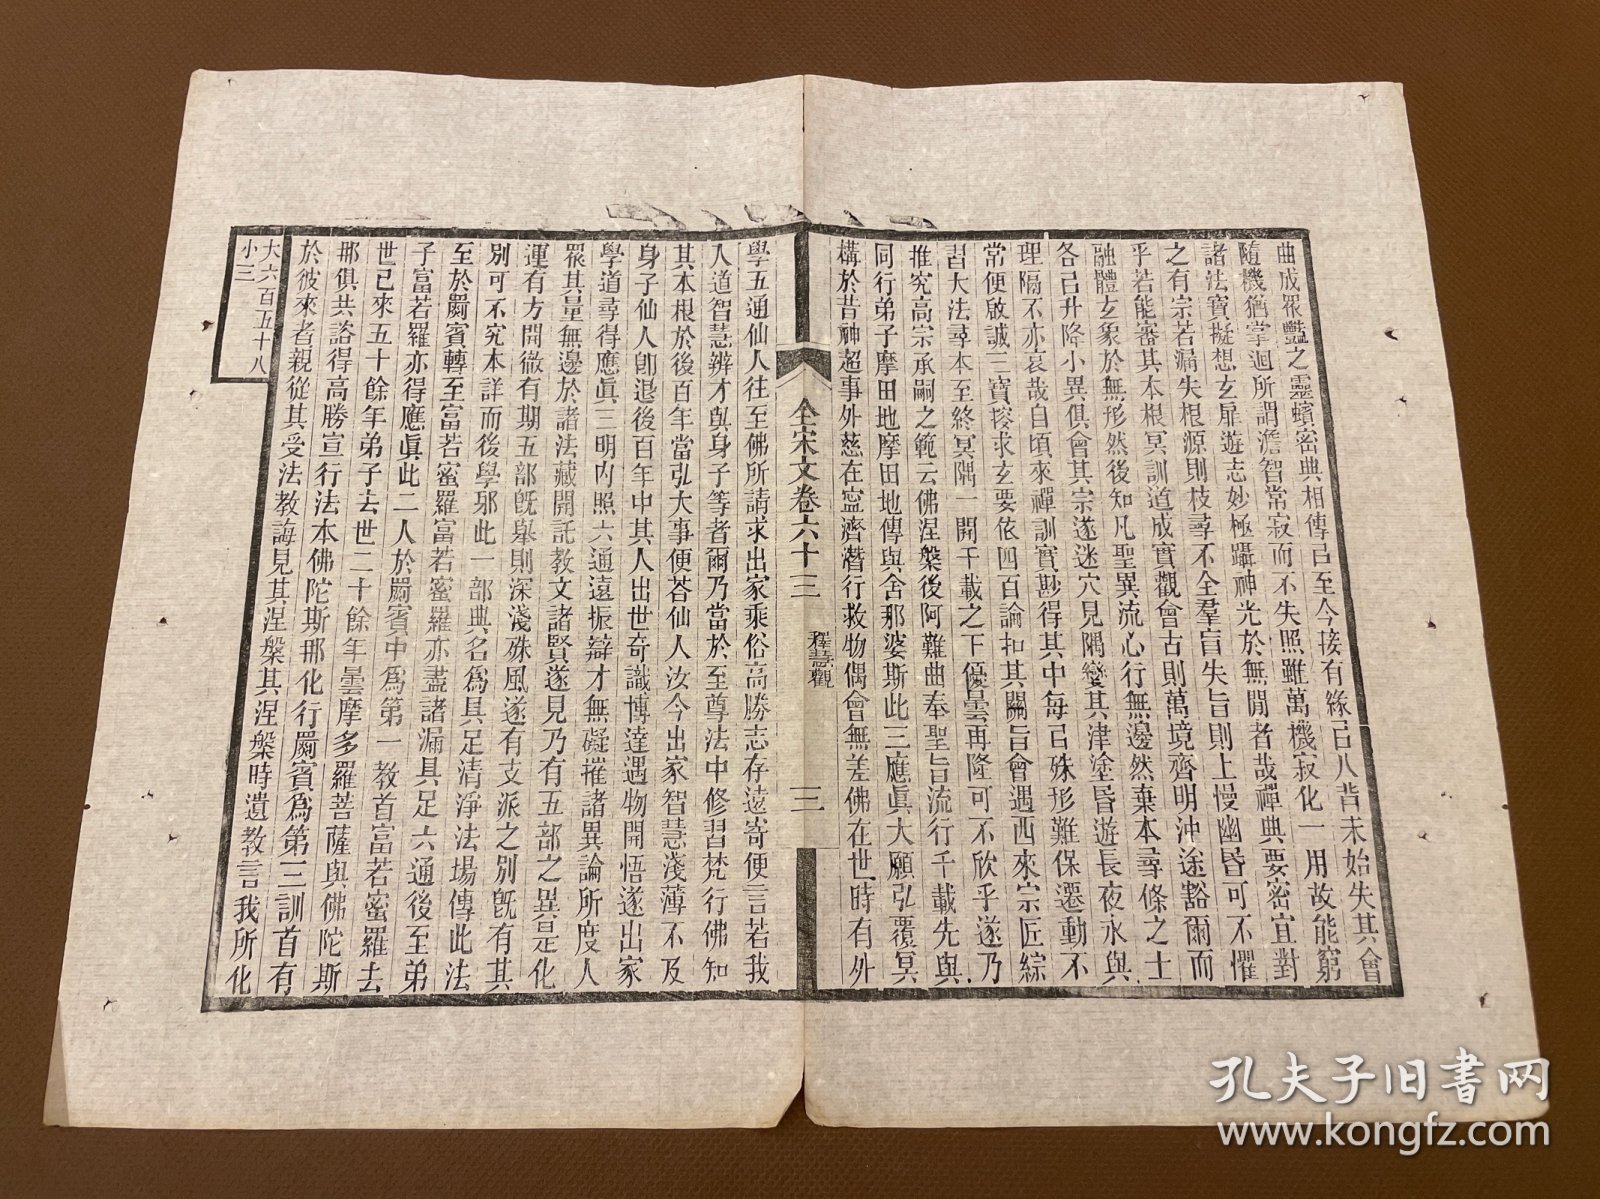 曲成眾豔之靈蠙密典相傳㠯至今接有緣㠯八背未始失其會
隨機猶掌迴所謂澹智常寂而不失照雖萬機寂化一用故能窮
諸法寶擬想玄扉遊志妙極躡神光於無閒者哉禪典要密宜對
之有宗若漏失根源則枝尋不全羣盲失旨則上慢幽昏可不懼
乎若能審其本根冥訓道成實觀會古則萬境齊明沖途豁爾而
融體玄象於無形然後知凡聖異流心行無邊然棄本尋條之士
各㠯升降小異俱會其宗遂迷穴見隅變其津塗昏遊長夜永與
理隔不亦哀哉自頃來禪訓實尠得其中每㠯殊形難保遷動不
常便啟誠三寶搜求玄要依四百論扣其關旨會遇西來宗匠綜
習大法尋本至終冥隅一開千載之下優曇再隆可不欣乎遂乃
推究高宗承嗣之範云佛涅槃後阿難曲奉聖旨流行千載先與
同行弟子摩田地摩田地傳與舍那婆斯此三應眞大願弘覆冥
構於昔神超事外慈在寍濟潛行救物偶會無差佛在世時有外
全宋文卷六十三 釋慧觀 三
學五通仙人往至佛所請求出家乘俗高勝志存遠寄便言若我
入道智慧辨才與身子等者爾乃當於至尊法中修習梵行佛知
其本根於後百年當弘大事便荅仙人汝今出家智慧淺薄不及
身子仙人卽退後百年中其人出世奇識博達遇物開悟遂出家
學道尋得應眞三明內照六通遠振辯才無礙摧諸異論所度人
眾其量無邊於諸法藏開託教文諸賢遂見乃有五部之異是化
運有方開徹有期五部旣舉則深淺殊風遂有支派之別旣有其
別可不究本詳而後學邪此一部典名爲具足清淨法場傳此法
至於罽賓轉至富若蜜羅富若蜜羅亦盡諸漏具足六通後至弟
子富若羅亦得應眞此二人於罽賓中爲第一教首富若蜜羅去
世已來五十餘年弟子去世二十餘年曇摩多羅菩薩與佛陀斯
那俱共諮得高勝宣行法本佛陀斯那化行罽賓爲第三訓首有
於彼來者親從其受法教誨見其涅槃其涅槃時遺教言我所化
大六百五十八
小三
孔夫子旧書网
www.kongfz.com